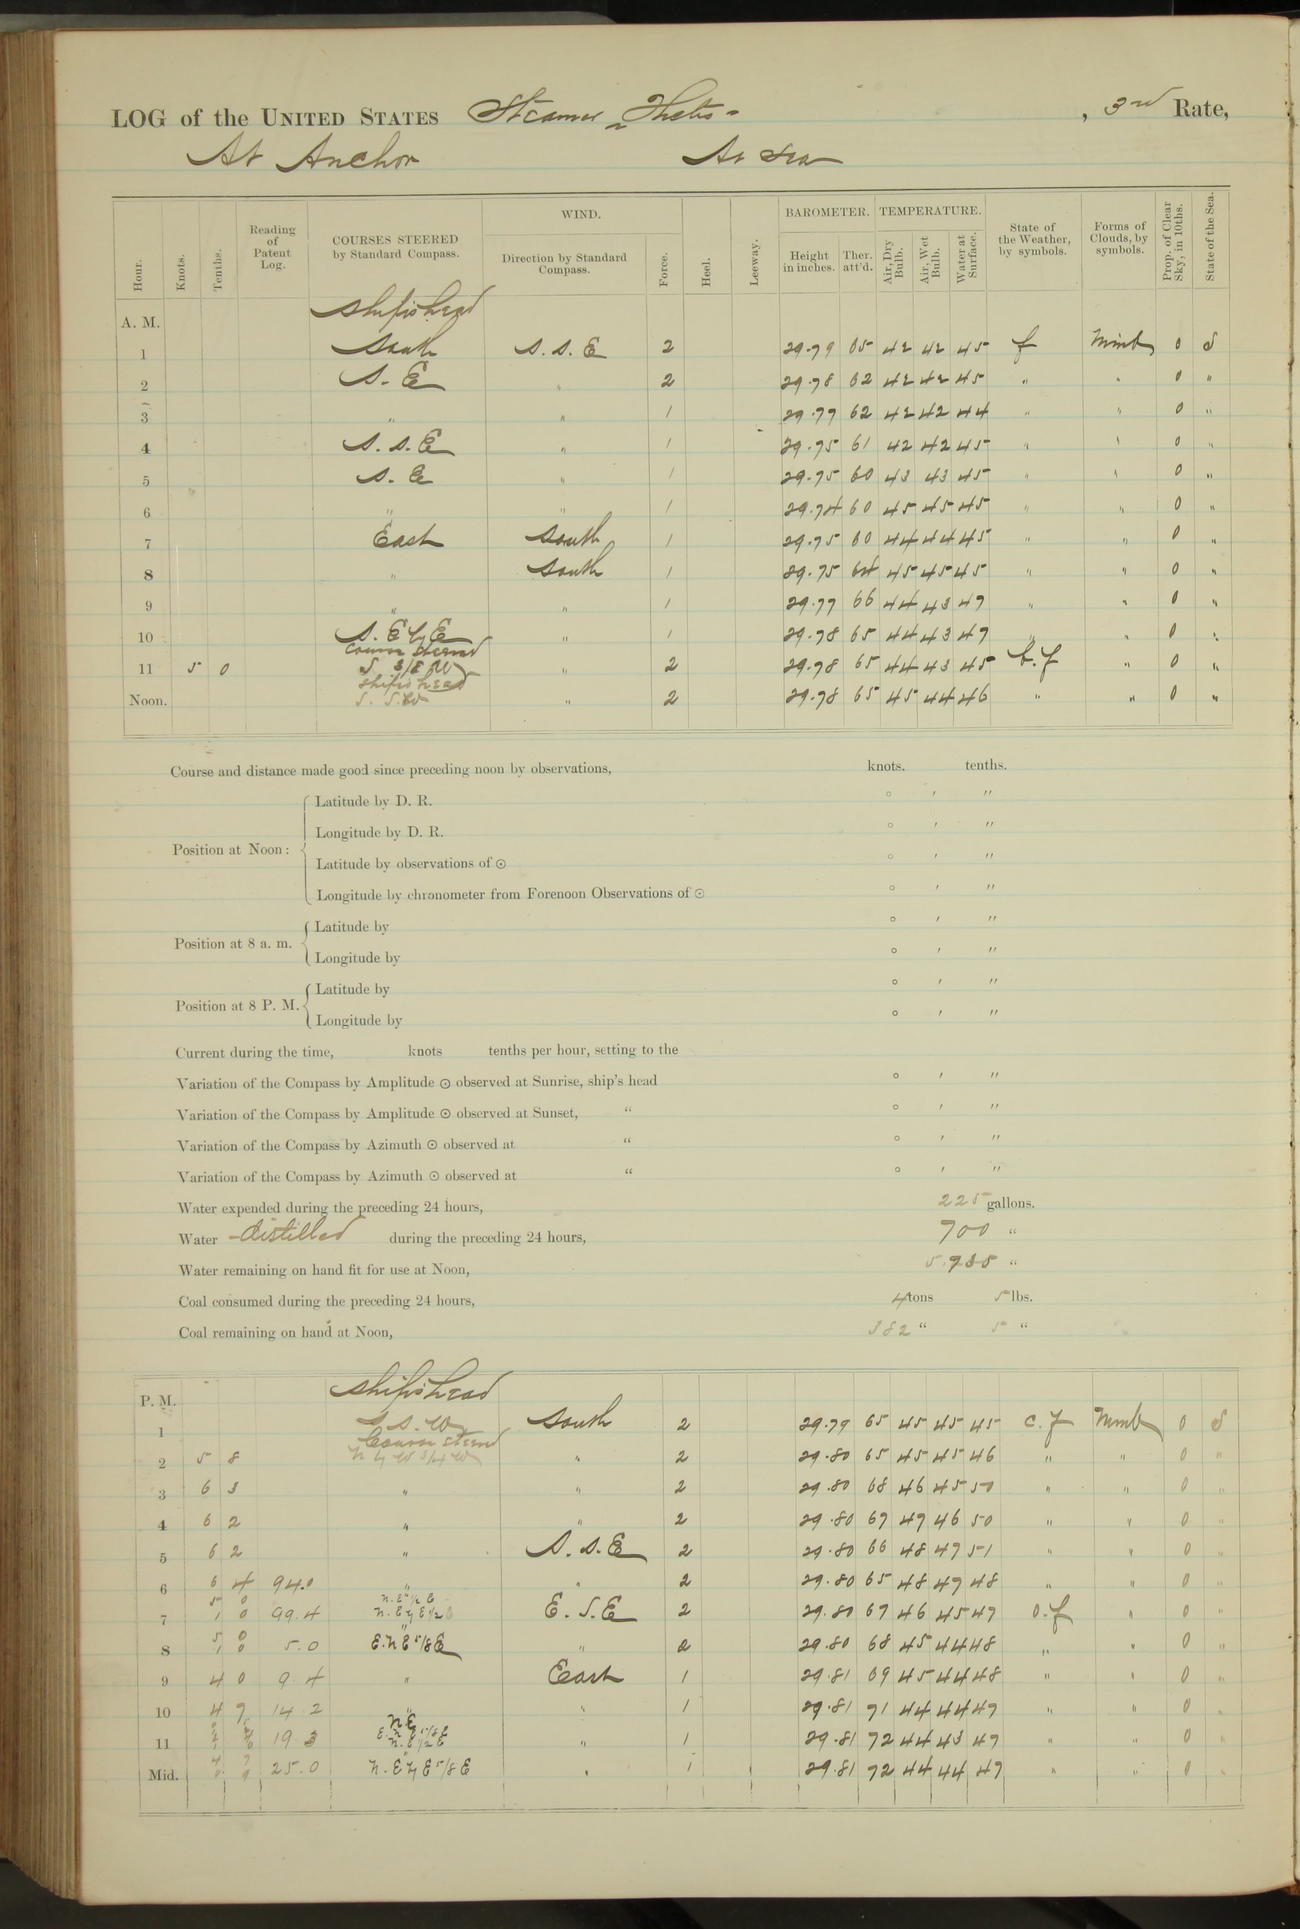 LOG of the UNITED STATES Steamer "Thetis" , 3rd Rate,
At Anchor At Sea
Hour. Knots. Tenths. Reading of Patent Log. COURSES STEERED by Standard Compass. WIND. Direction by Standard Compass. Force. Heel. Leeway. BAROMETER. Height in inches. Ther. att'd. TEMPERATURE. Air, Dry Bulb. Air, Wet Bulb. Water at Surface. State of the Weather, by symbols. Forms of Clouds, by symbols. Prop. of Clear Sky, in 10ths. State of the Sea.
A. M. Ship's head
1 South S. S. E 2 29.79 65 42 42 45 f Nimb 0 S
2 S. E " 2 29.78 62 42 42 45 " " 0 "
3 " " 1 29.77 62 42 42 44 " " 0 "
4 S. S. E " 1 29.75 61 42 42 45 " " 0 "
5 S. E " 1 29.75 60 43 43 45 " " 0 "
6 " " 1 29.74 60 45 45 45 " " 0 "
7 East South 1 29.75 60 44 44 45 " " 0 "
8 " South 1 29.75 64 45 45 45 " " 0 "
9 " " 1 29.77 66 44 43 47 " " 0 "
10 S. E by E " 1 29.78 65 44 43 47 " " 0 "
Course Steered
11 5 0 S 3/8 W " 2 29.78 65 44 43 45 c.f " 0 "
Ship's head
Noon. S. S.W " 2 29.78 65 45 44 46 " " 0 "
Course and distance made good since preceding noon by observations, knots. tenths.
Position at Noon: Latitude by D. R. ° ′ ″
Longitude by D. R. ° ′ ″
Latitude by observations of ⊙ ° ′ ″
Longitude by chronometer from Forenoon Observations of ⊙ ° ′ ″
Position at 8 a. m. Latitude by ° ′ ″
Longitude by ° ′ ″
Position at 8 P. M. Latitude by ° ′ ″
Longitude by ° ′ ″
Current during the time, knots tenths per hour, setting to the
Variation of the Compass by Amplitude ⊙ observed at Sunrise, ship's head ° ′ ″
Variation of the Compass by Amplitude ⊙ observed at Sunset, " ° ′ ″
Variation of the Compass by Azimuth ⊙ observed at " ° ′ ″
Variation of the Compass by Azimuth ⊙ observed at " ° ′ ″
Water expended during the preceding 24 hours, 225 gallons.
Water distilled during the preceding 24 hours, 700 "
Water remaining on hand fit for use at Noon, "
Coal consumed during the preceding 24 hours, 4 tons 5 lbs.
Coal remaining on hand at Noon, 382 " 5 "
P. M. Ship's head
1 S S. W South 2 29.79 65 45 45 45 c.f Nimb 0 S
Course steered
2 5 8 N by W 3/4 W " 2 29.80 65 45 45 46 " " 0 "
3 6 3 " " 2 29.80 68 46 45 50 " " 0 "
4 6 2 " " 2 29.80 67 47 46 50 " " 0 "
5 6 2 " S. S. E 2 29.80 66 48 47 51 " " 0 "
6 6 4 94.0 " " 2 29.80 65 48 47 48 " " 0 "
5 0 N. E 1/2 E
7 1 0 99.4 N. E by E 1/2 E. S. E 2 29.80 67 46 45 47 o.f " 0 "
8 5.0 E.N E 5/8 E " 2 29.80 68 45 44 48 " " 0 "
9 4 0 9.4 " East 1 29.81 69 45 44 48 " " 0 "
10 4 9 14.2 " " 1 29.81 71 44 44 47 " " 0 "
N E
11 19.3 N. E 1/2 E " 1 29.81 72 44 43 47 " " 0 "
Mid. 25.0 N. E by E 5/8 E " 1 29.81 72 44 44 47 " " 0 "